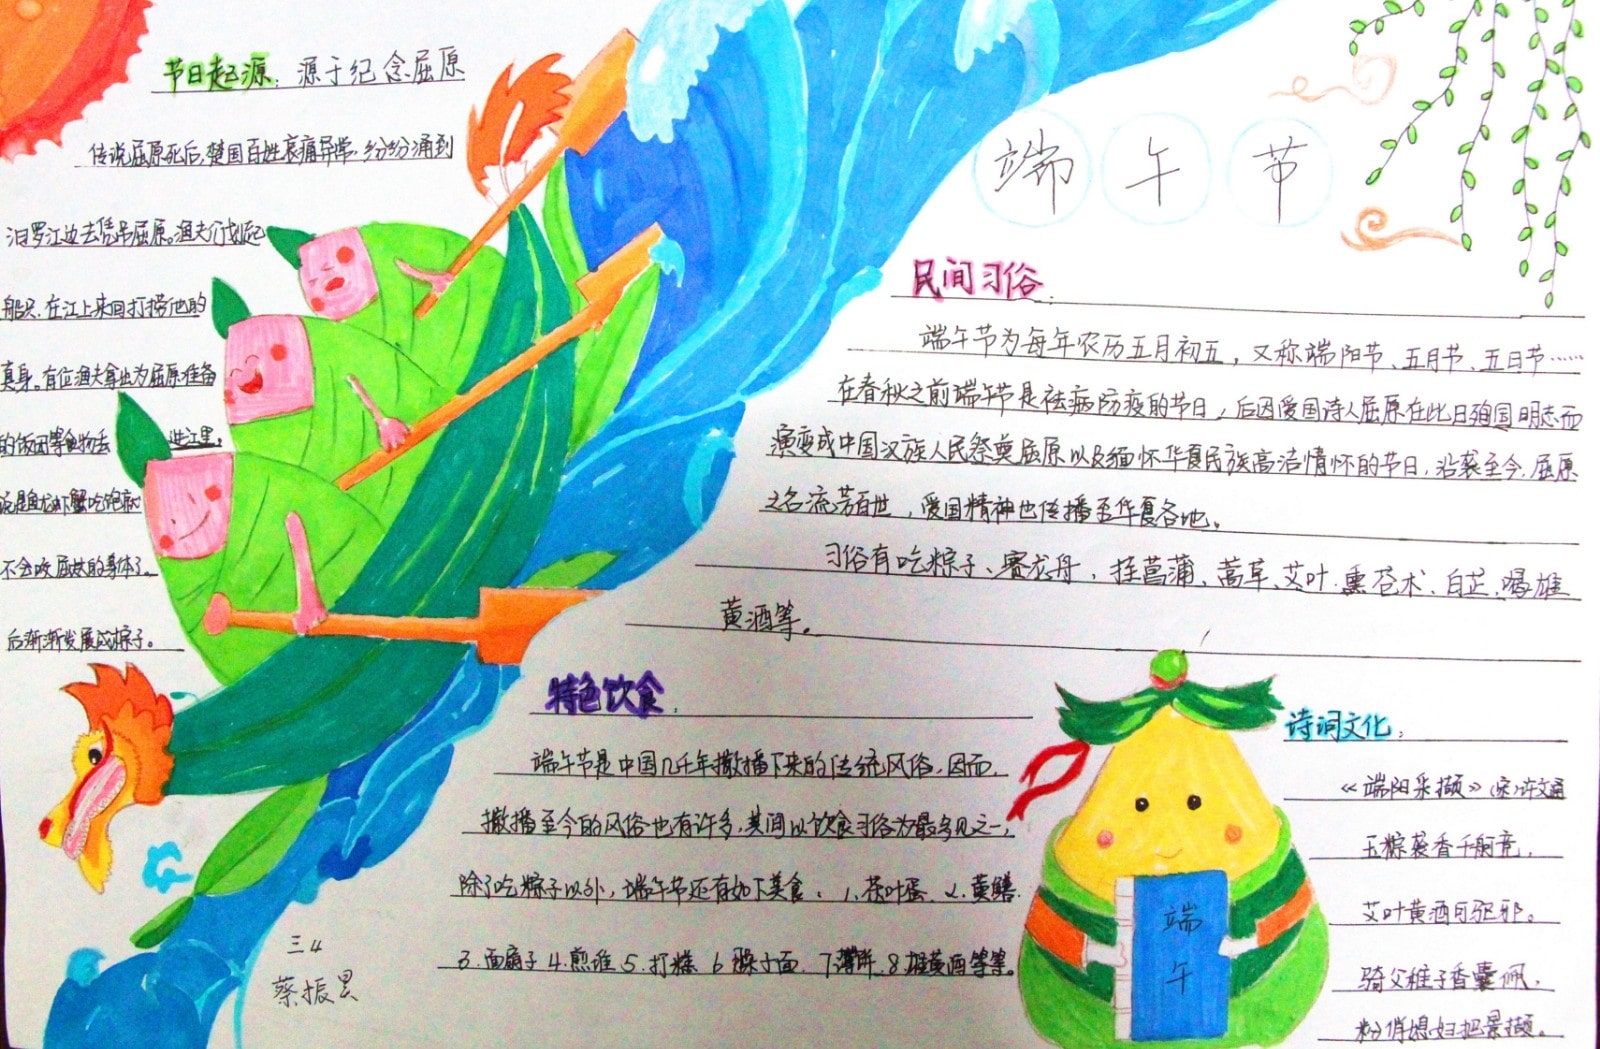 节日起源：源于纪念屈原
传说屈原死后，楚国百姓哀痛异常，纷纷涌到
汨罗江边去凭吊屈原。渔夫们划起
船只，在江上来回打捞他的
真身。有位渔夫拿出为屈原准备
的饭团等食物丢进江里，
说是鱼龙虾蟹吃饱就
不会咬屈大夫的身体了。
后渐渐发展成粽子。
端午节
民间习俗：
端午节为每年农历五月初五，又称端阳节、五月节、五日节……
在春秋之前端午节是祛病防疫的节日，后因爱国诗人屈原在此日殉国明志而
演变成中国汉族人民祭奠屈原以及缅怀华夏民族高洁情怀的节日，沿袭至今，屈原
之名流芳百世，爱国精神也传播至华夏各地。
习俗有吃粽子、赛龙舟，挂菖蒲、蒿草、艾叶，熏苍术、白芷，喝雄
黄酒等。
特色饮食：
端午节是中国几千年撒播下来的传统风俗，因而，
撒播至今的风俗也有许多，其间以饮食习俗为最多见之一，
除了吃粽子以外，端午节还有如下美食：1、茶叶蛋、2、黄鳝
3.面扇子 4.煎堆 5.打糕 6 面 7薄饼 8雄黄酒等等。
诗词文化：
《端阳采撷》（宋）许文通
玉粽袭香千舸竞，
艾叶黄酒可驱邪。
骑父稚子香囊佩，
粉俏媳妇把景撷。
端
午
三4
蔡振